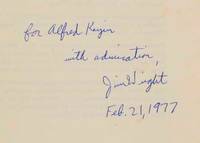 for Alfred Kazin
with admiration,
Jim Wright
Feb. 21, 1977